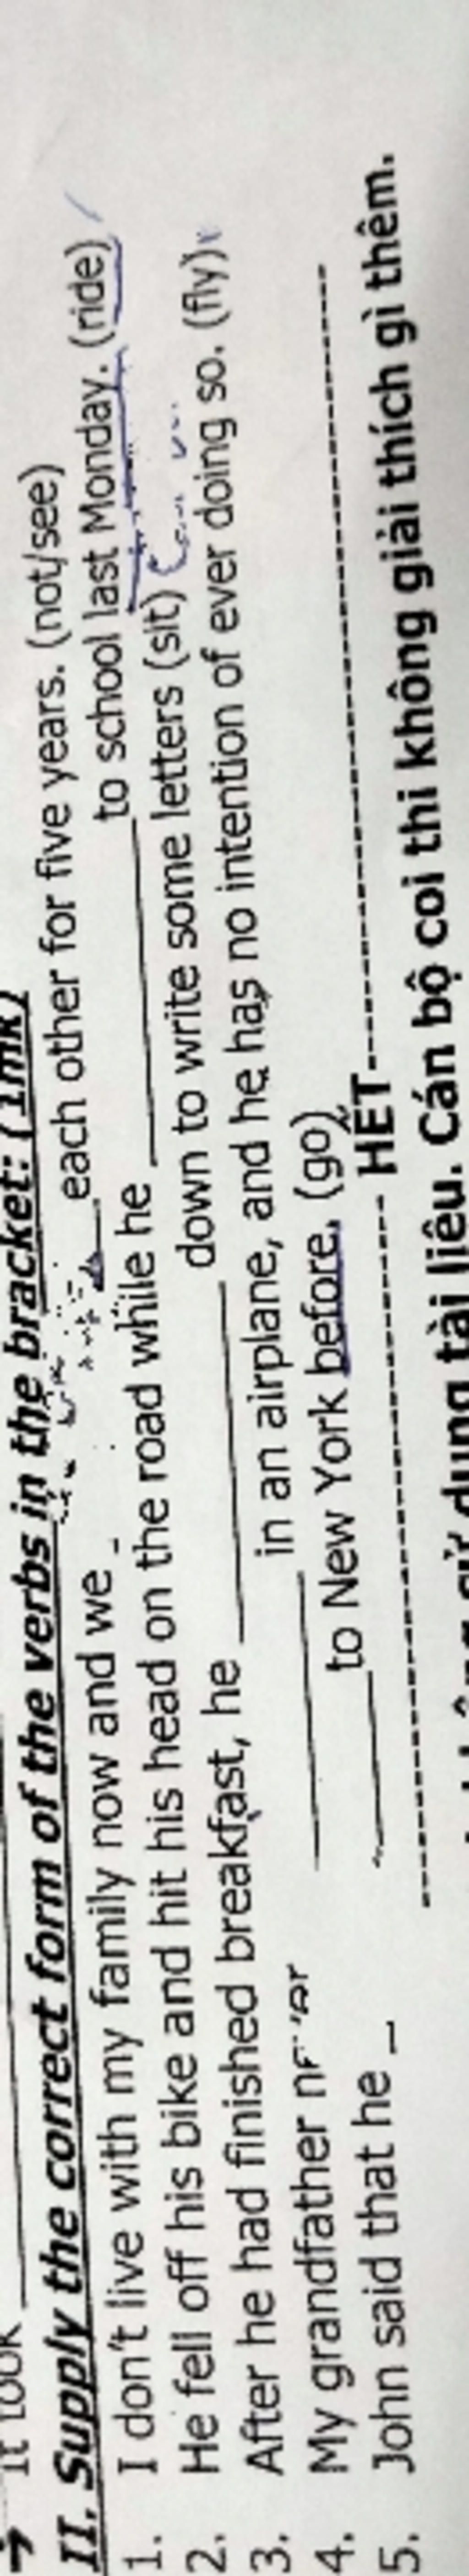 II. Supply the correct form of the verbs in the bracket: (1mk)
1. I don't live with my family now and we _ each other for five years. (not/see)
2. He fell off his bike and hit his head on the road while he ____________ to school last Monday. (ride)
3. After he had finished breakfast, he ____________ down to write some letters (sit)
4. My grandfather ____________ in an airplane, and he has no intention of ever doing so. (fly)
5. John said that he _ ____________ to New York before. (go)
---------------------------- HẾT----------------------------
tài liệu. Cán bộ coi thi không giải thích gì thêm.